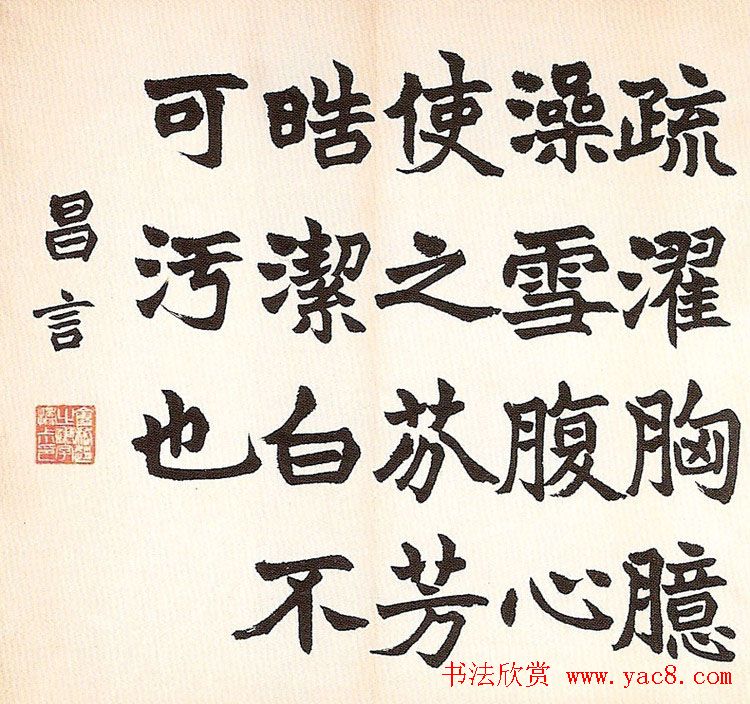 疏濯胸臆
澡雪腹心
使之芬芳
晧潔白不
可汚也
昌言
书法欣赏 www.yac8.com